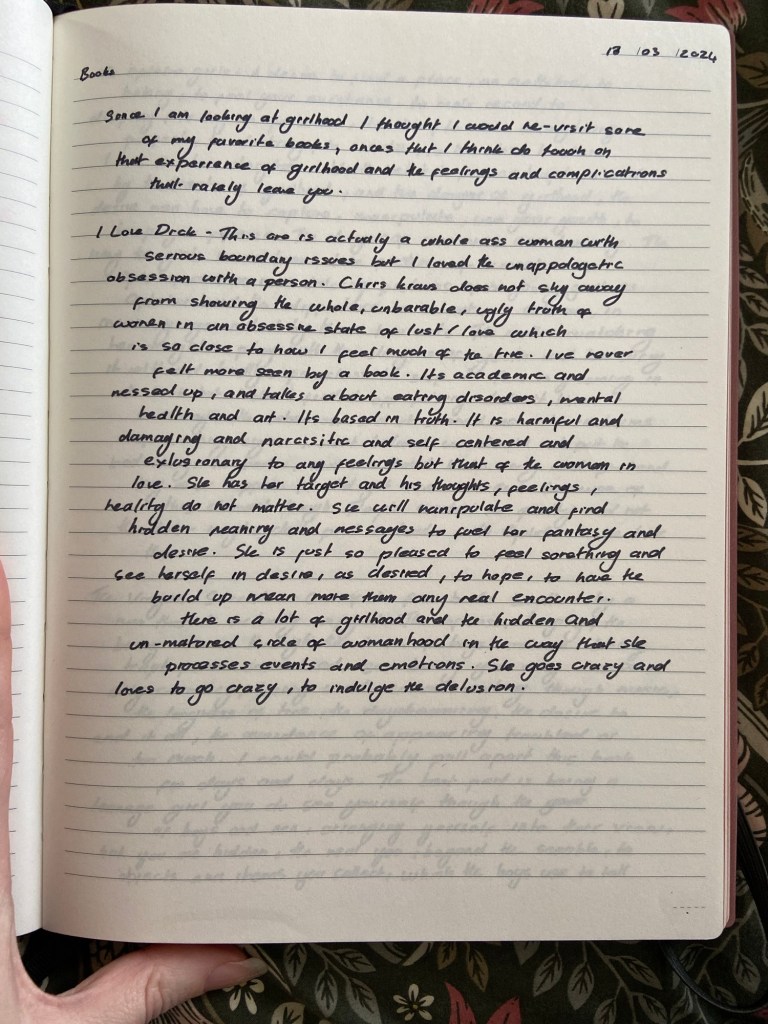 18 /03 /2024
Books
Since I am looking at girlhood I thought I would re-visit some
of my favorite books, ones that I think do touch on
that experience of girlhood and the feelings and complications
that rarely leave you.
I Love Dick - This one is actualy a whole ass woman with
serious boundary issues but I loved the unappologetic
obsession with a person. Chris kraus does not shy away
from showing the whole, unbarable, ugly truth of
women in an obsessive state of lust / love which
is so close to how I feel much of the time. Ive never
felt more seen by a book. Its academic and
messed up, and talks about eating disorders, mental
health and art. Its based in truth. It is harmful and
damaging and narcisitic and self centered and
exlusionary to any feelings but that of the woman in
love. She has her target and his thoughts, feelings,
reality do not matter. She will manipulate and find
hidden meaning and messages to fuel her fantasy and
desire. She is just so pleased to feel something and
see herself in desire, as desired, to hope, to have the
build up mean more than any real encounter.
There is a lot of girlhood and the hidden and
un-matured side of womanhood in the way that she
processes events and emotions. She goes crazy and
loves to go crazy, to indulge the delusion.